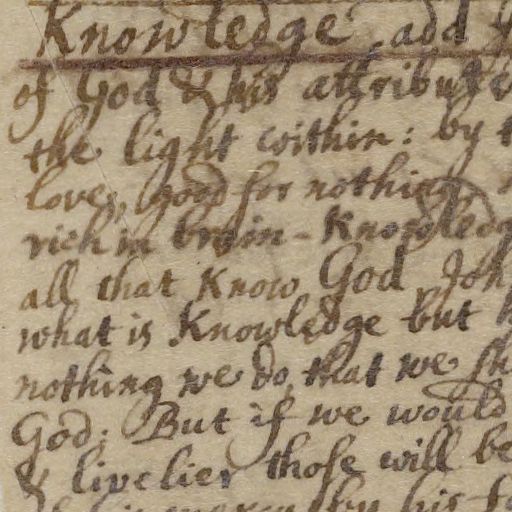 Knowledge, add
of God & his attribute
the light within: by
love, good for nothing
rich in brain-Knowledg
all that Know God, Joh
what is Knowledge but
nothing we do, that we sh
God; But if we would
& livelier those will be
by his